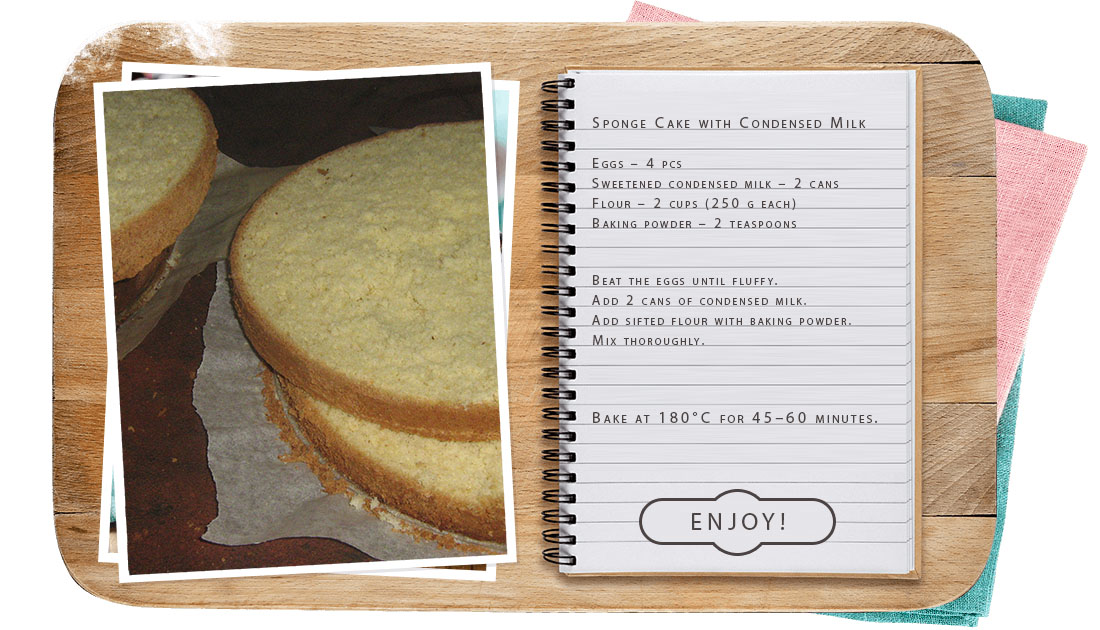 Sponge Cake with Condensed Milk
Eggs – 4 pcs
Sweetened condensed milk – 2 cans
Flour – 2 cups (250 g each)
Baking powder – 2 teaspoons
Beat the eggs until fluffy.
Add 2 cans of condensed milk.
Add sifted flour with baking powder.
Mix thoroughly.
Bake at 180°C for 45–60 minutes.
ENJOY!